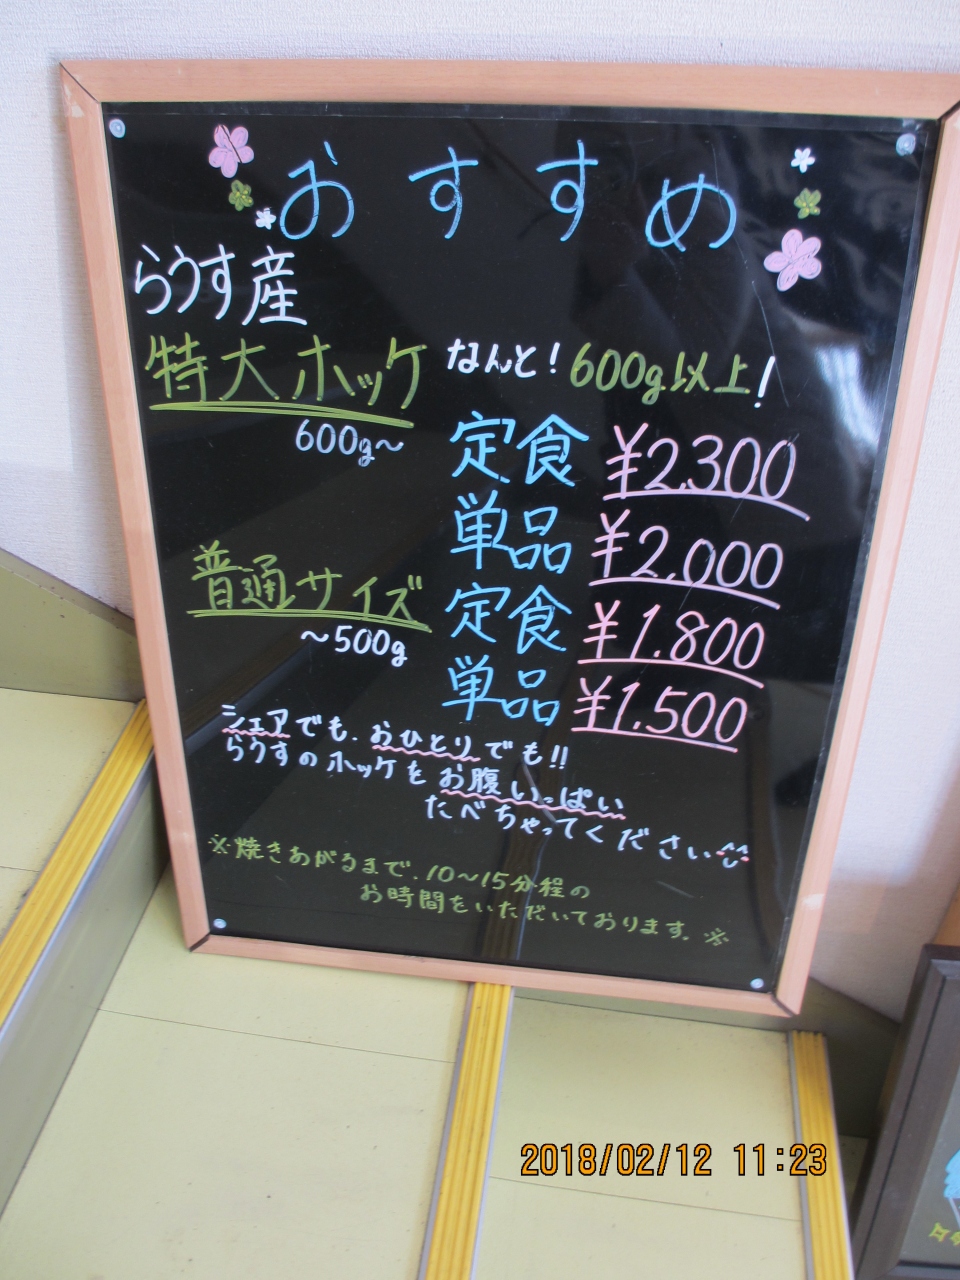 おすすめ
らうす産
特大ホッケ なんと！600g以上！
600g～
定食 ¥2.300
単品 ¥2.000
普通サイズ
～500g
定食 ¥1.800
単品 ¥1.500
シェアでも、おひとりでも!!
らうすのホッケをお腹いっぱい
たべちゃってください
※焼きあがるまで、10～15分程の
お時間をいただいております。※
2018/02/12 11:23